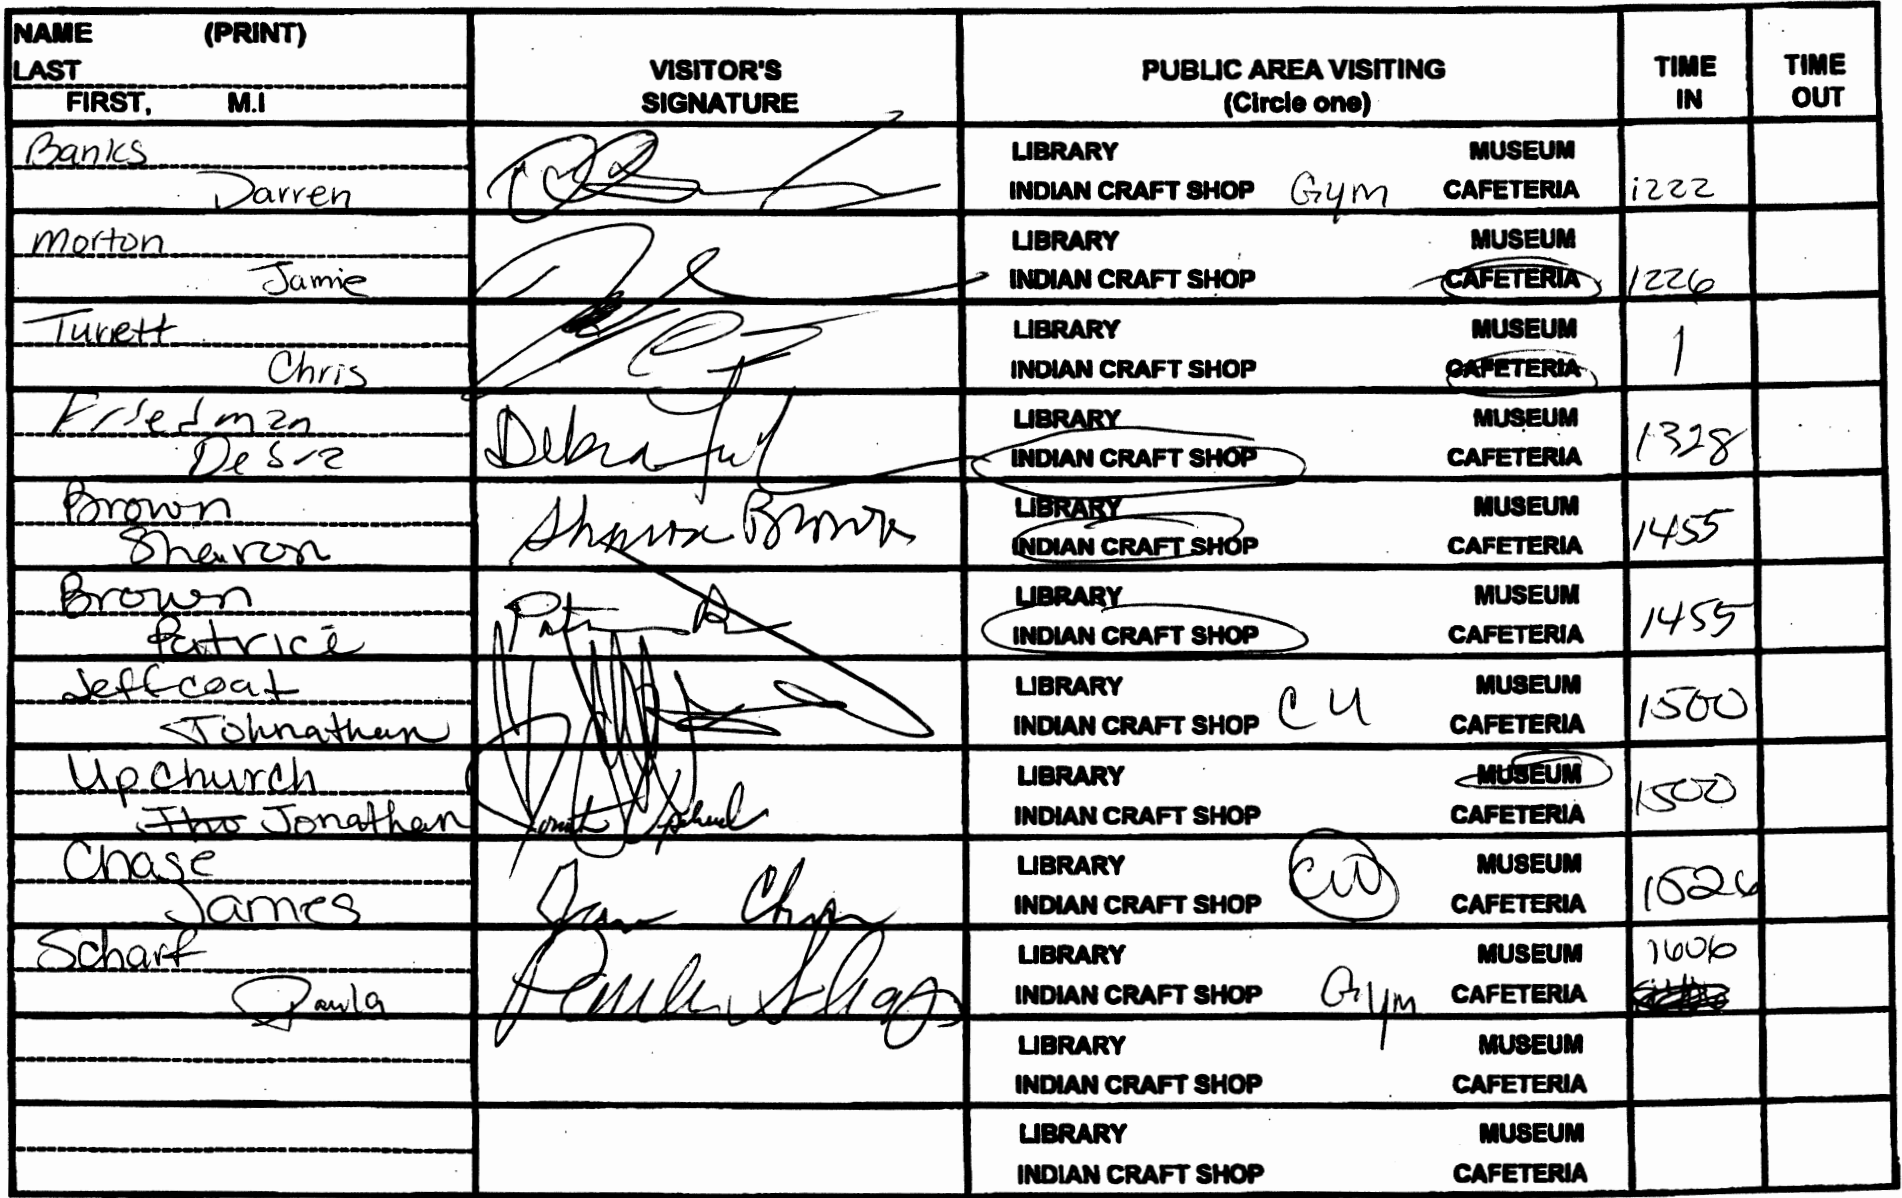 NAME (PRINT)
LAST
FIRST, M.I
VISITOR'S
SIGNATURE
PUBLIC AREA VISITING
(Circle one)
TIME
IN
TIME
OUT
Banks
Darren
LIBRARY MUSEUM
INDIAN CRAFT SHOP Gym CAFETERIA
1222
Morton
Jamie
LIBRARY MUSEUM
INDIAN CRAFT SHOP CAFETERIA
1226
Turett
Chris
LIBRARY MUSEUM
INDIAN CRAFT SHOP CAFETERIA
1
Friedman
Debra
Debra
LIBRARY MUSEUM
INDIAN CRAFT SHOP CAFETERIA
1328
Brown
Sharon
Sharon Brown
LIBRARY MUSEUM
INDIAN CRAFT SHOP CAFETERIA
1455
Brown
Patrice
LIBRARY MUSEUM
INDIAN CRAFT SHOP CAFETERIA
1455
Jeffcoat
Johnathan
LIBRARY MUSEUM
INDIAN CRAFT SHOP CU CAFETERIA
1500
Upchurch
Jho Jonathan
LIBRARY MUSEUM
INDIAN CRAFT SHOP CAFETERIA
1500
Chase
James
LIBRARY CU MUSEUM
INDIAN CRAFT SHOP CAFETERIA
1526
Scharf
Paula
LIBRARY MUSEUM
INDIAN CRAFT SHOP Gym CAFETERIA
1606
LIBRARY MUSEUM
INDIAN CRAFT SHOP CAFETERIA
LIBRARY MUSEUM
INDIAN CRAFT SHOP CAFETERIA